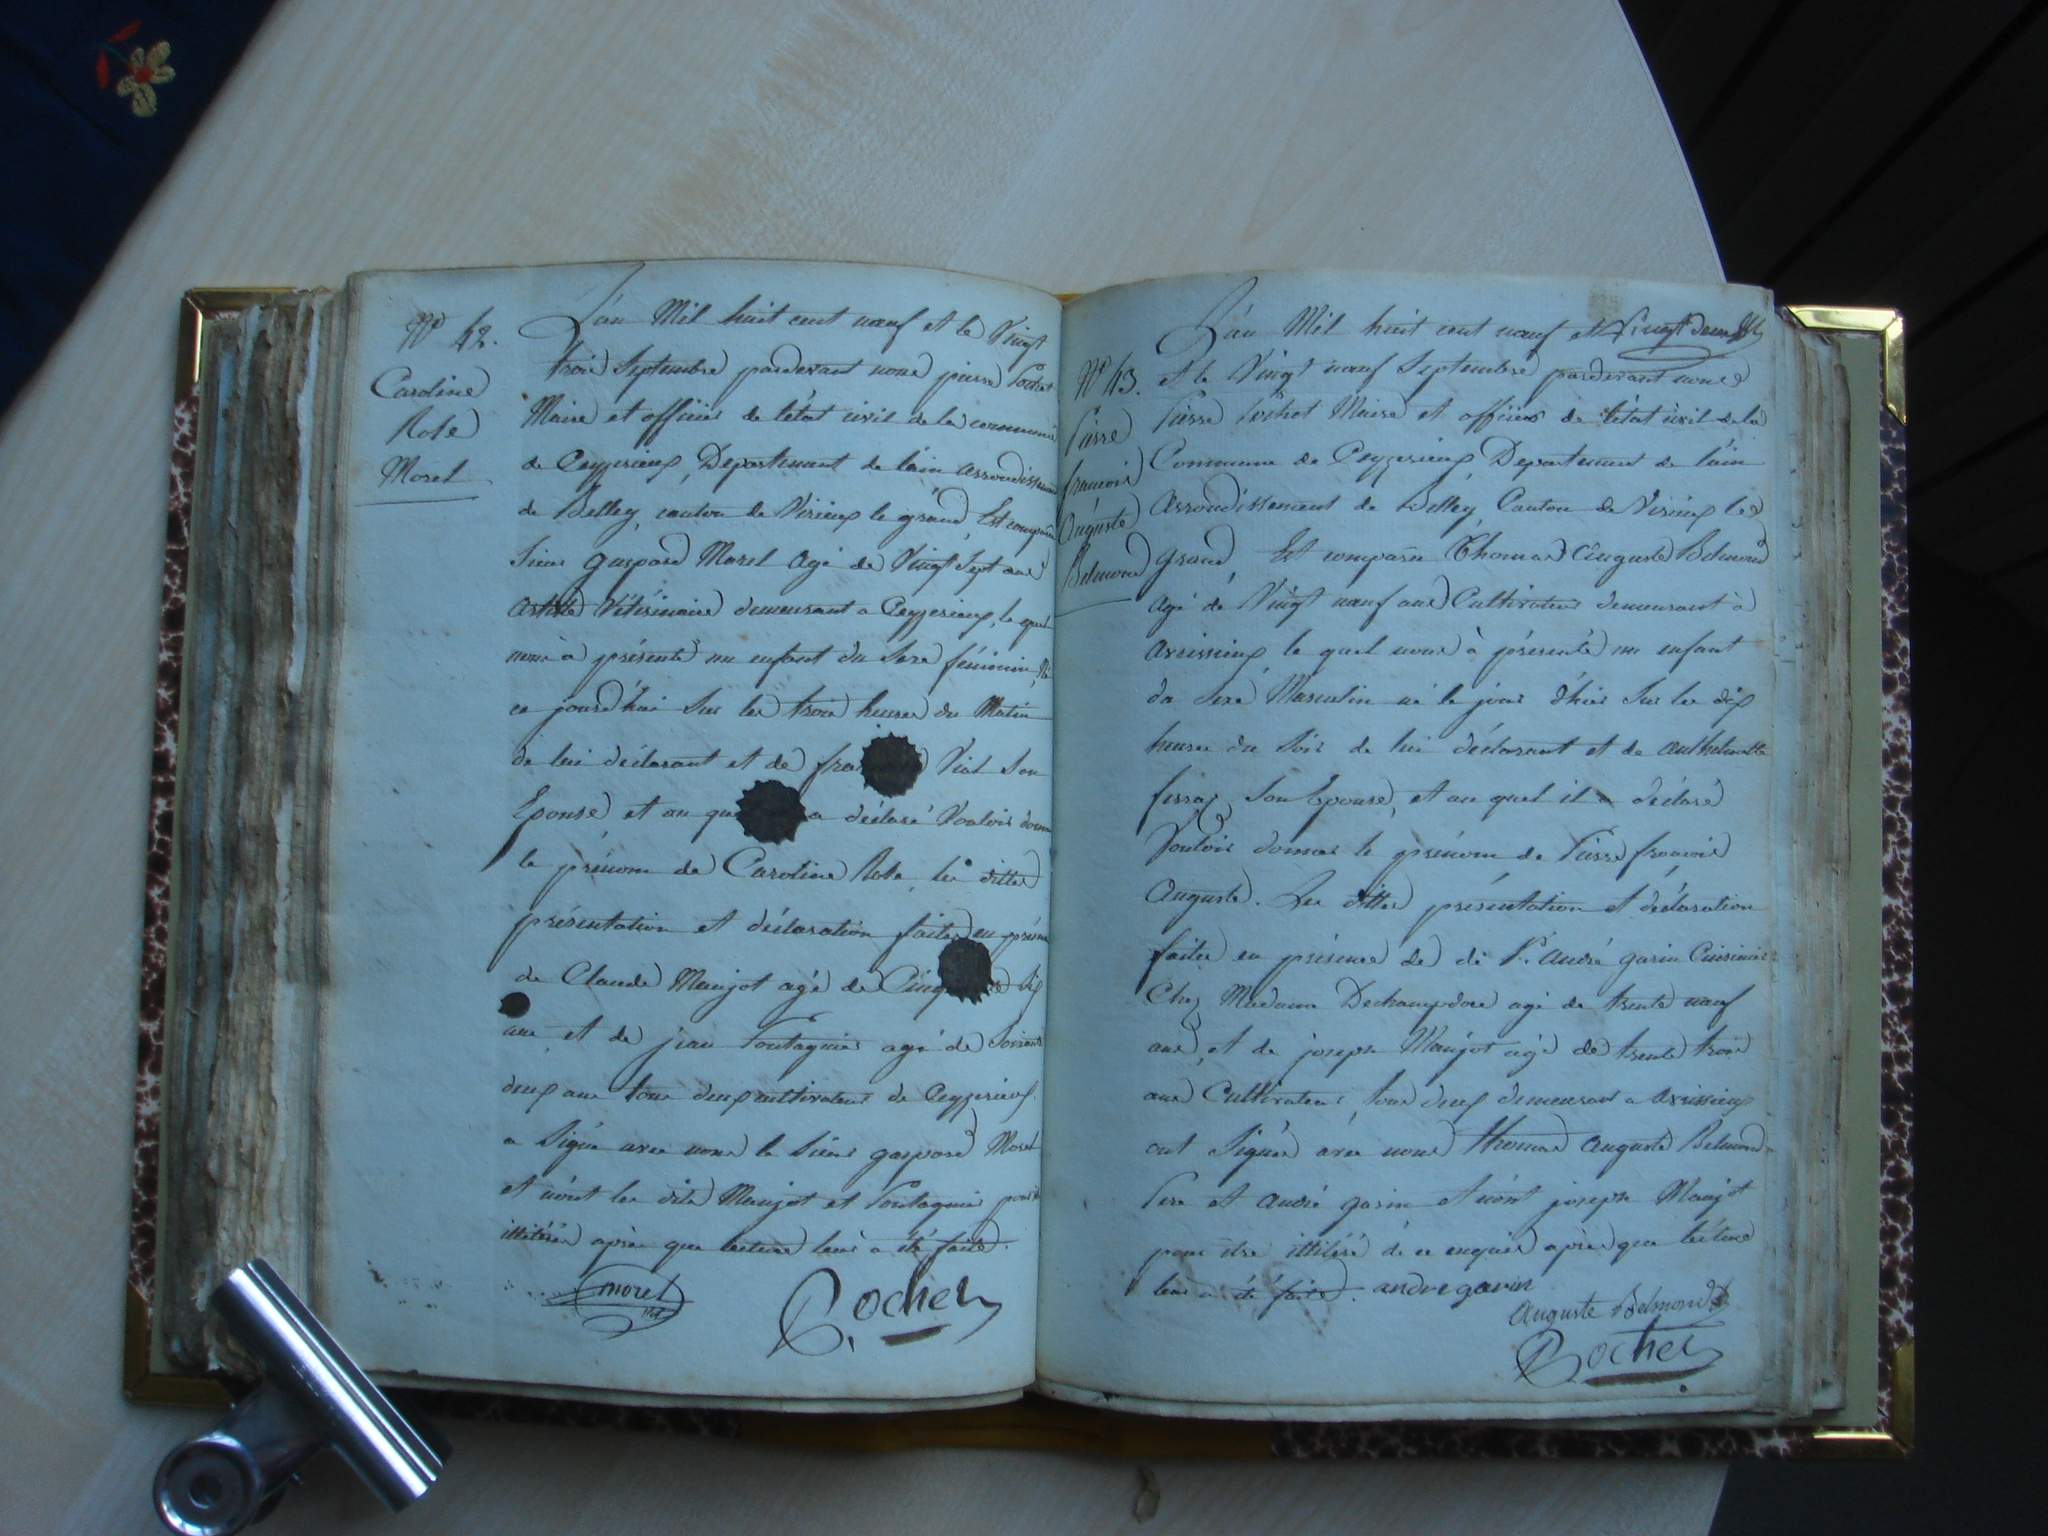 N° 42.
Caroline
Rose
Morel
L'an Mil huit cent nœuf et le Vingt
trois Septembre pardevant nous pierre Cochet
Maire et officier de l'état civil de la commune
de Ceyzerieux, Departement de l'ain arrondissement
de Belley, canton de Virieux le grand, Est comparu
Sieur gaspard Morel agé de Vingt Sept ans
artiste Vétérinaire demeurant a Ceyzerieux, le quel
nous à présenté un enfant du Sexe féminin, né
ce jourd'hui Sur les trois heures du Matin
de lui déclarant et de fra Vial Son
Epouse, et au que a déclaré Vouloir donner
le prénom de Caroline Rose, les dittes
présentation et déclaration faites en présence
de Claude Maujot agé de Cinq Six
ans et de jean agé de Soixante
deux ans tous deux cultivateurs de Ceyzerieux.
a Signé avec nous le Sieur gaspard Morel
et n'ont les dits Maujot et pour
illitérés après que lecture leur a été faite.
morel
Cochet
N° 43.
Pierre
françois
Auguste
Belmond
L'an Mil huit cent nœuf et
et le Vingt nœuf Septembre pardevant nous
Pierre Cochet Maire et officier de l'état civil de la
Commune de Ceyzerieux Departement de l'ain
Arrondissement de Belley Canton de Virieux le
grand, Est comparu Thomas Auguste Belmond
agé de Vingt nœuf ans Cultivateur demeurant à
avrissieux, le quel nous à présenté un enfant
du Sexe Masculin né le jour d'hier Sur les dix
heures du Soir de lui déclarant et de
Son Epouse, et au quel il a déclaré
Vouloir donner le prénom de Pierre françois
Auguste. Les dittes présentation et déclaration
faites en présence de André garin Cuisinier
Chez Madame agé de trente nœuf
ans, et de joseph Maujot agé de trente trois
ans Cultivateur, tous deux demeurant a avrissieux
ont Signés avec nous Thomas Auguste Belmond
Pere et André garin et n'ont joseph Maujot
pour être illitéré de ce enquis après que lecture
leur a été faite. andre garin
Auguste Belmond
Cochet